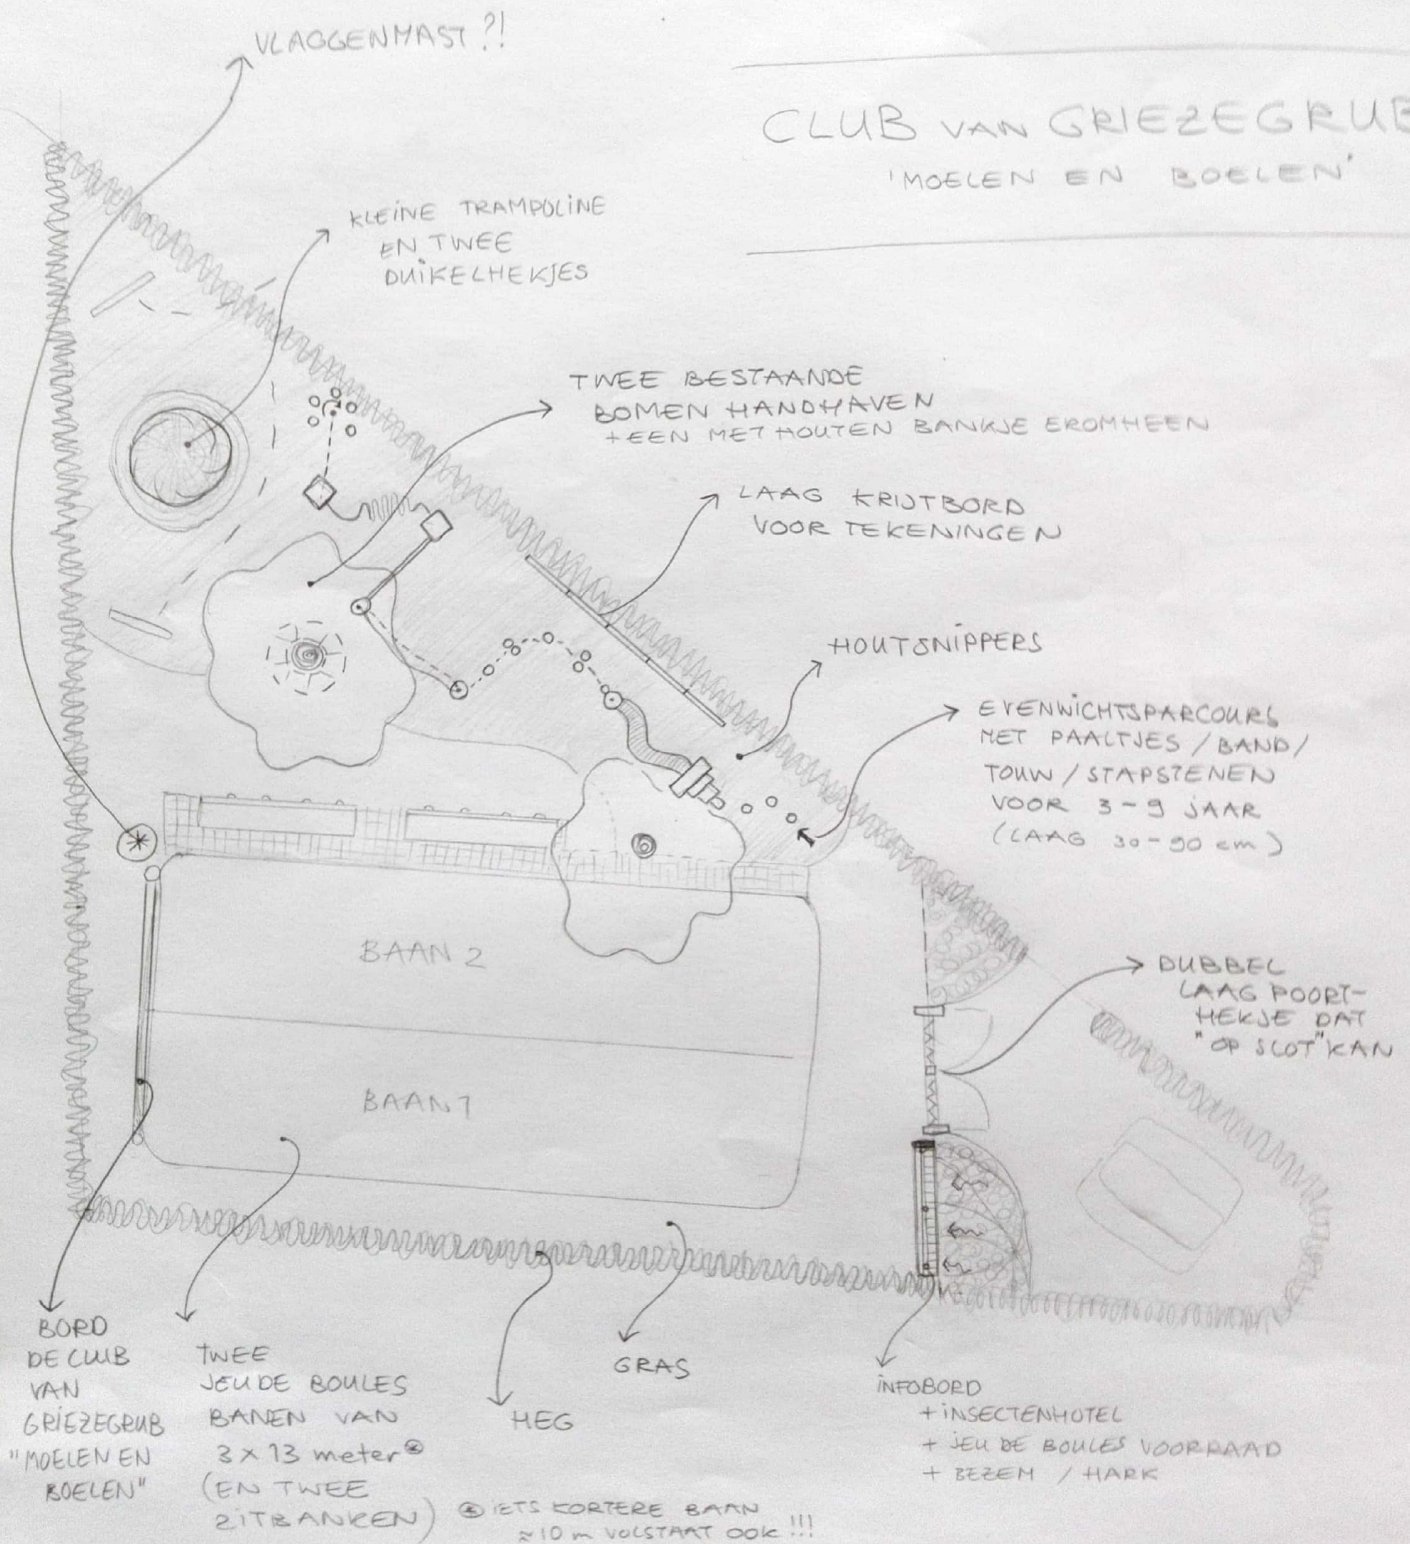 VLAGGENMAST?!
CLUB VAN GRIEZEGRUB
'MOELEN EN BOELEN'
KLEINE TRAMPOLINE
EN TWEE
DUIKELHEKJES
TWEE BESTAANDE
BOMEN HANDHAVEN
+ EEN MET HOUTEN BANKJE EROMHEEN
LAAG KRIJTBORD
VOOR TEKENINGEN
HOUTSNIPPERS
EVENWICHTSPARCOURS
MET PAALTJES / BAND /
TOUW / STAPSTENEN
VOOR 3-9 JAAR
(LAAG 30-90 cm)
BAAN 2
BAAN 1
DUBBEL
LAAG POORT-
HEKJE DAT
"OP SLOT" KAN
BORD
DE CLUB
VAN
GRIEZEGRUB
"MOELEN EN
BOELEN"
TWEE
JEU DE BOULES
BANEN VAN
3 x 13 meter*
(EN TWEE
ZITBANKEN)
* IETS KORTERE BAAN
≈10 m VOLSTAAT OOK!!!
HEG
GRAS
INFOBORD
+ INSECTENHOTEL
+ JEU DE BOULES VOORRAAD
+ BEZEM / HARK